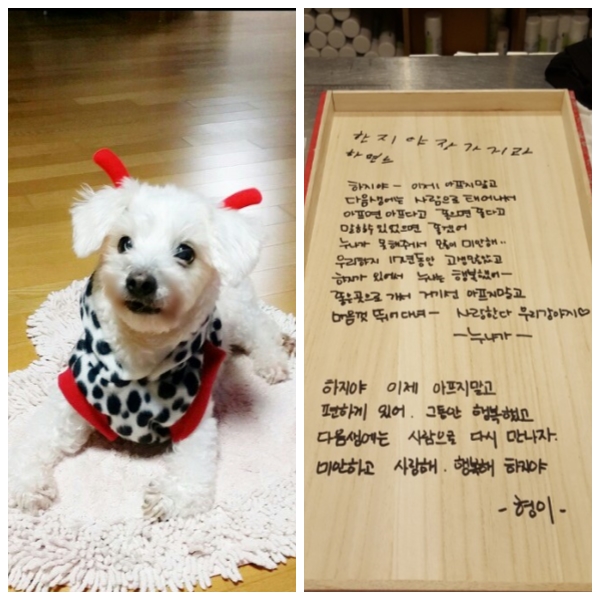 한지야 잘가지라
하멘스
하지야~ 이제 아프지말고
다음생에는 사람으로 태어나서
아프면 아프다고 좋으면 좋다고
말할수 있었으면 좋겠어
누나가 못해줘서 미안해..
우리강아지 17년동안 고생많았고
하지가 있어서 누나는 행복했어~
좋은곳으로 가서 거기선 아프지말고
마음껏 뛰어다녀~ 사랑한다 우리강아지♡
-누나가-
하지야 이제 아프지말고
편하게 있어. 그동안 행복했고
다음생에는 사람으로 다시 만나자.
미안하고 사랑해. 행복해 하지야
-형이-